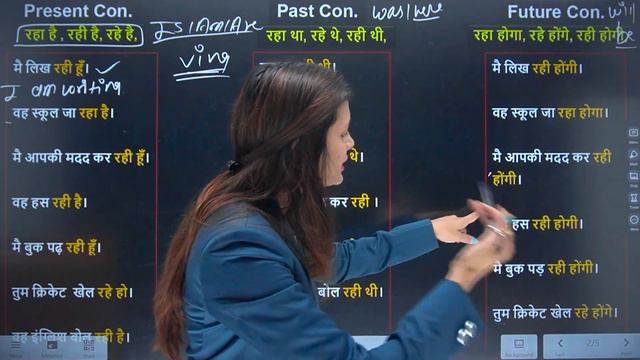 Present Con.
रहा है , रही है, रहे है,
Is/am/Are
ving
मै लिख रही हूँ।
I am writing
वह स्कूल जा रहा है।
मै आपकी मदद कर रही हूँ।
वह हस रही है।
मै बुक पढ़ रही हूँ।
तुम क्रिकेट खेल रहे हो।
वह इंग्लिश बोल रही है।
Past Con.
was/were
रहा था, रहे थे, रही थी,
थी।
थे।
कर रही ।
बोल रही थी।
Future Con.
will be
रहा होगा, रहे होंगे, रही होगी
मै लिख रही होंगी।
वह स्कूल जा रहा होगा।
मै आपकी मदद कर रही
होंगी।
हस रही होगी।
मै बुक पड़ रही होंगी।
तुम क्रिकेट खेल रहे होंगे।
2/5